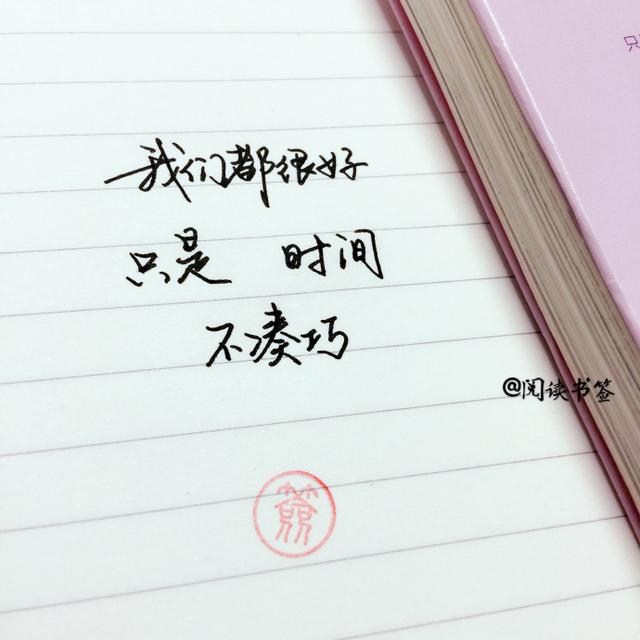 我们都很好
只是 时间
不凑巧
@阅读书签
签
只